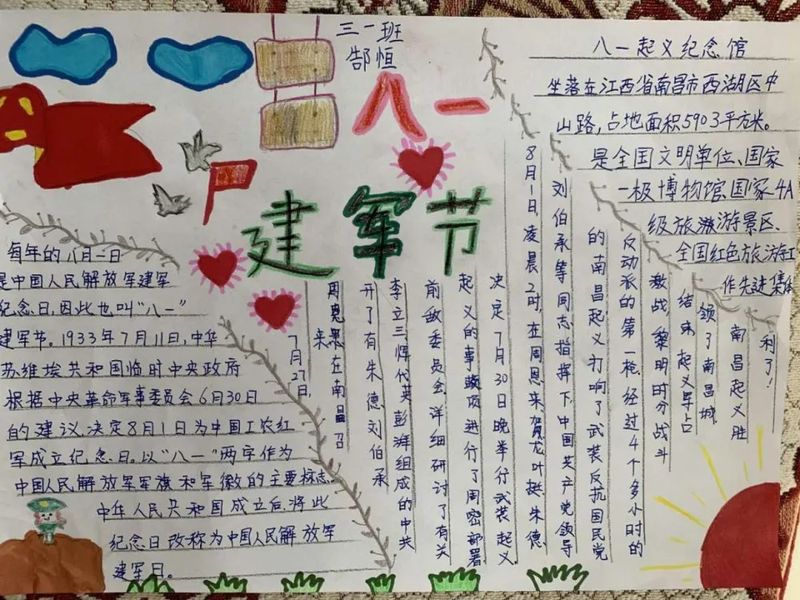 三一班
郜恒
八一
建军节
每年的八月一日
是中国人民解放军建军
纪念日,因此也叫“八一”
建军节。1933年7月11日,中华
苏维埃共和国临时中央政府
根据中央革命军事委员会6月30日
的建议,决定8月1日为中国工农红
军成立纪念日。以“八一”两字作为
中国人民解放军军旗和军徽的主要标志。
中华人民共和国成立后,将此
纪念日改称为中国人民解放军
建军日。
7月27日,
周恩来在南昌召
开了有朱德刘伯承
李立三恽代英彭湃组成的中共
前敌委员会,详细研讨了有关
起义的事项,进行了周密部署
决定7月30日晚举行武装起义.
8月1日,凌晨2时,在周恩来贺龙叶挺朱德
刘伯承等同志指挥下,中国共产党领导
的南昌起义打响了武装反抗国民党
反动派的第一枪,经过4个多小时的
激战,黎明时分战斗
结束,起义军占
领了南昌城
南昌起义胜
利了!
八一起义纪念馆
坐落在江西省南昌市西湖区中
山路,占地面积5903平方米。
是全国文明单位、国家
一极博物馆国家4A
级旅游游景区、
全国红色旅游工
作先进集体